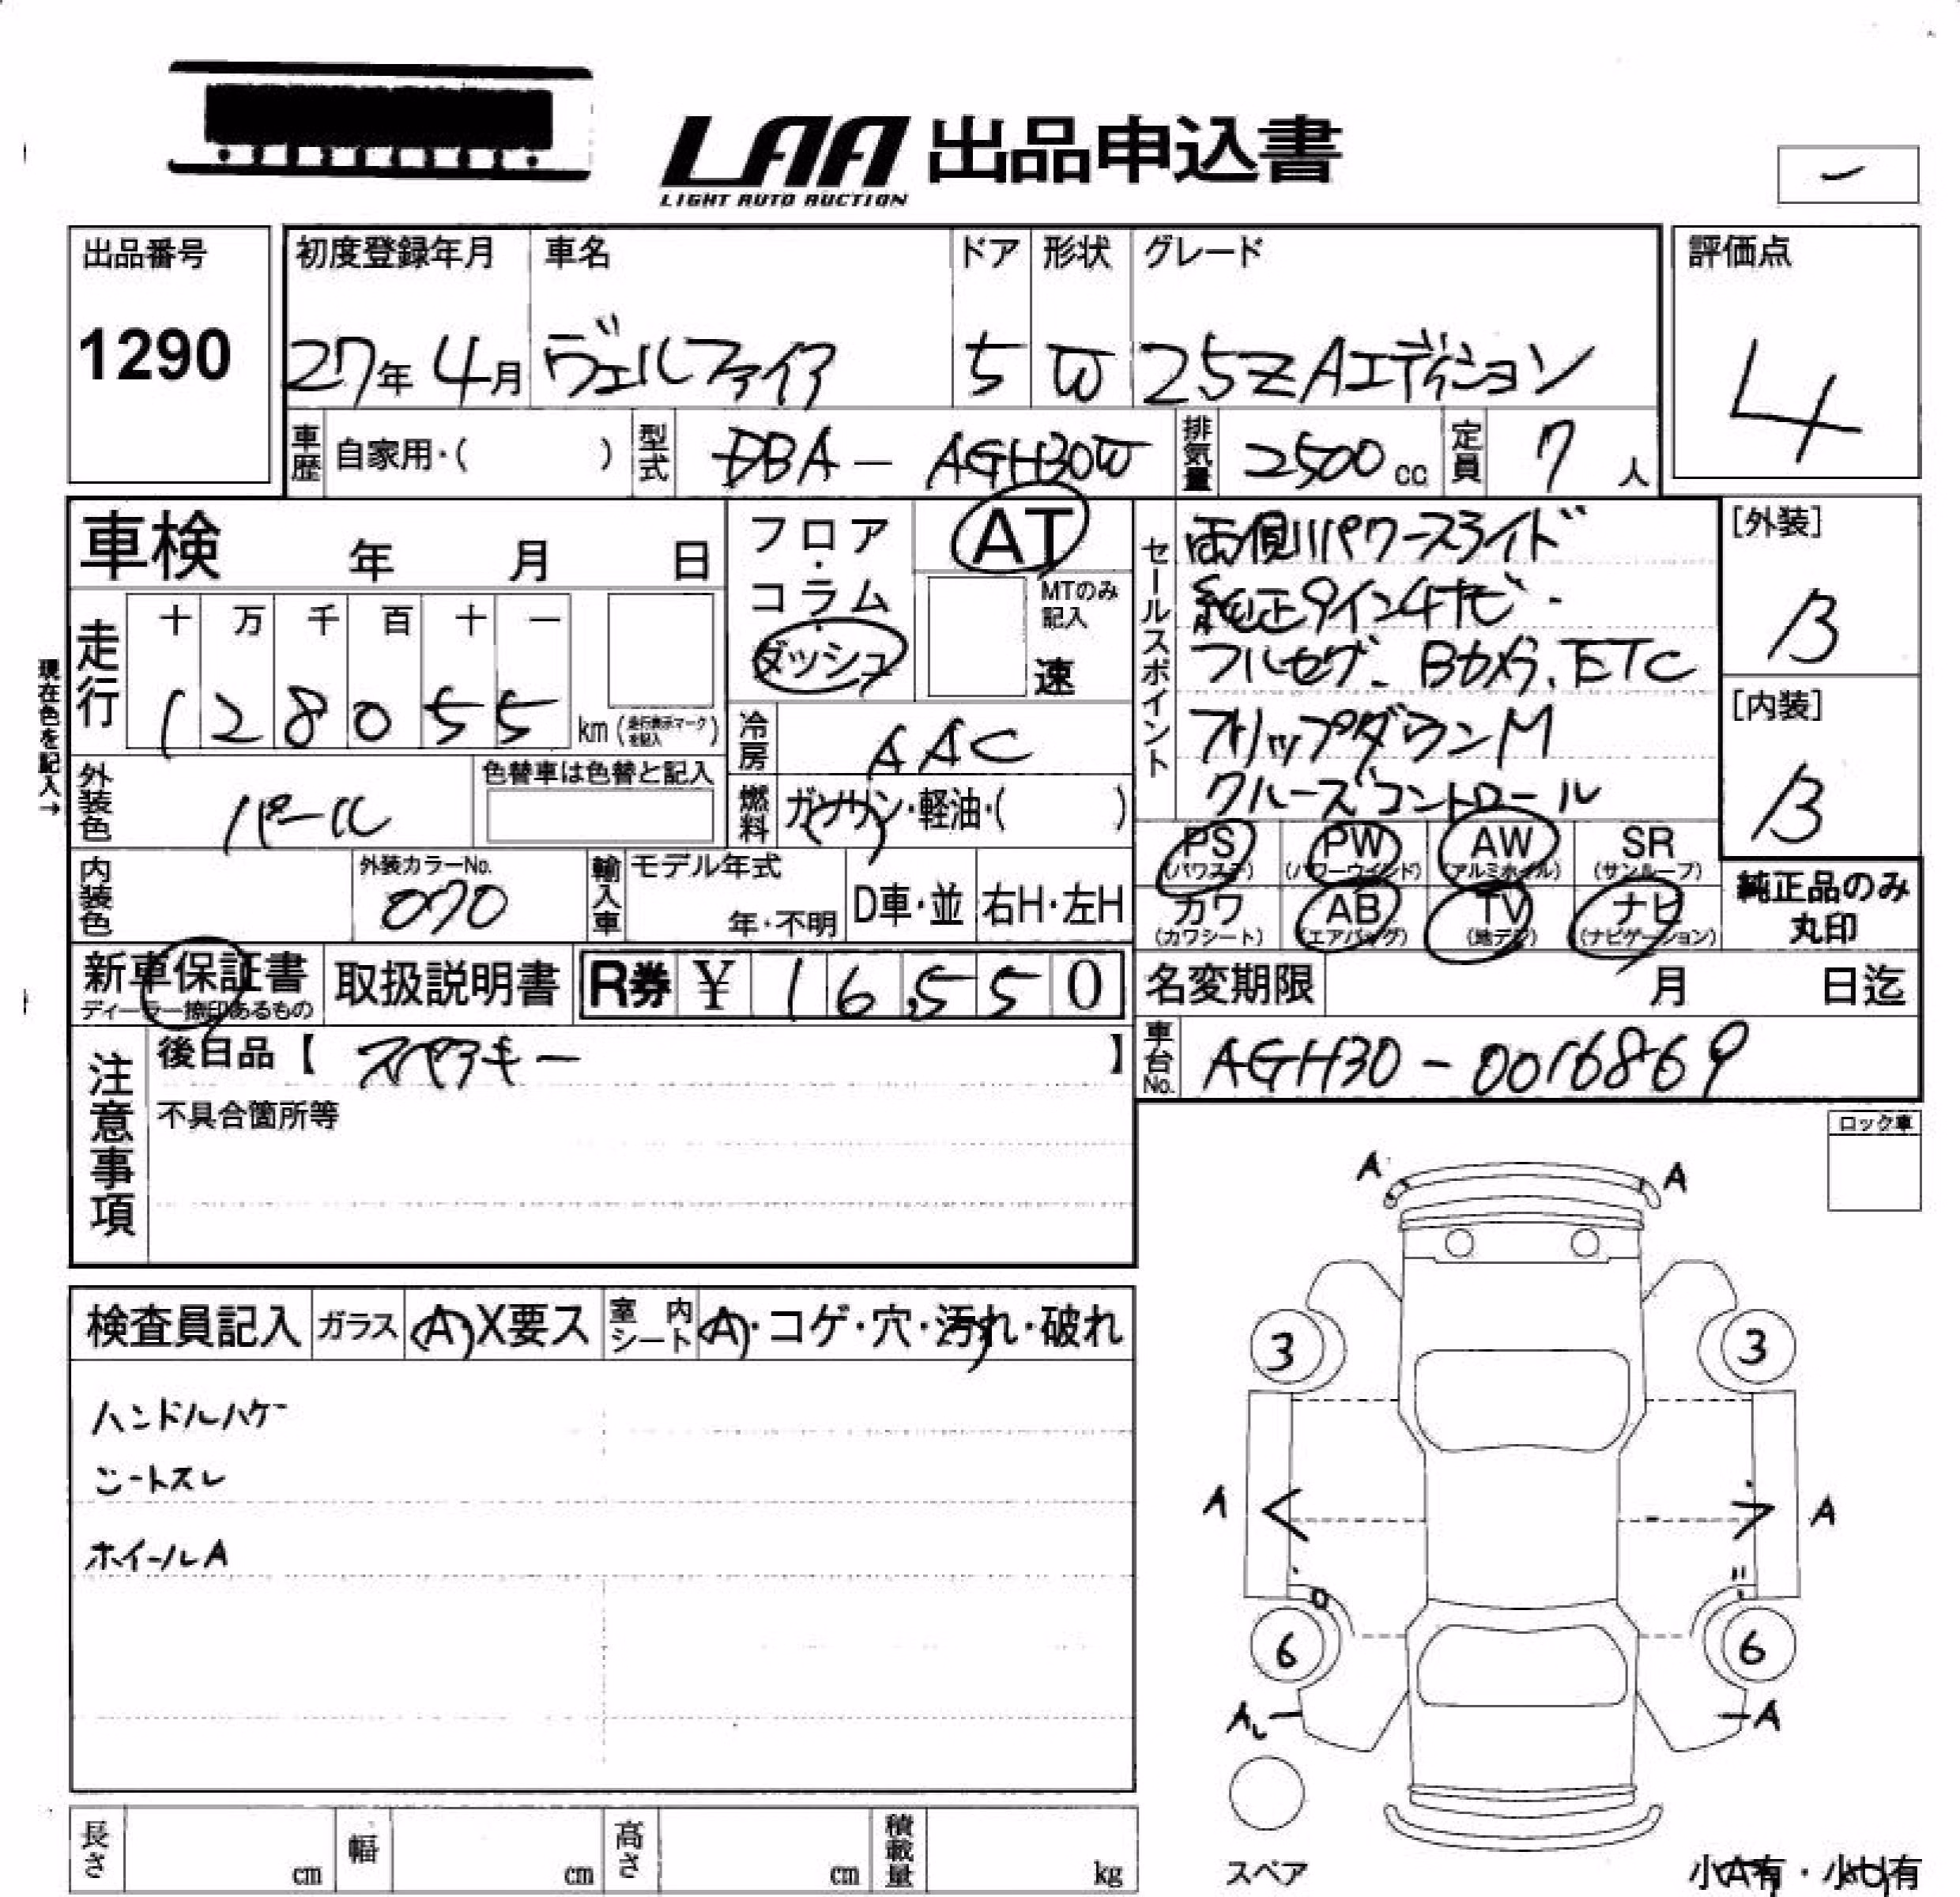 LAA 出品申込書
LIGHT AUTO AUCTION
出品番号
1290
初度登録年月
27年4月
車名
ヴェルファイア
ドア
5
形状
W
グレード
2.5Z Aエディション
評価点
4
車歴
自家用・( )
型式
DBA - AGH30W
排気量
2500cc
定員
7人
車検 年 月 日
フロア・コラム・ダッシュ
AT
MTのみ記入
速
セールスポイント
両側パワースライド
純正9インチナビ
フルセグ、Bカメラ、ETC
フリップダウンM
クルーズコントロール
[外装]
B
[内装]
B
現在色を記入→
走行
十 万 千 百 十 一
1 2 8 0 5 5
km (走行表示マークを記入)
冷房
AAC
外装色
パール
色替車は色替と記入
燃料
ガソリン・軽油・( )
PS (パワステ)
PW (パワーウインド)
AW (アルミホイル)
SR (サンルーフ)
カワ (カワシート)
AB (エアバッグ)
TV (地デジ)
ナビ (ナビゲーション)
純正品のみ丸印
内装色
外装カラーNo.
070
輸入車
モデル年式
年・不明
D車・並
右H・左H
新車保証書
ディーラー捺印あるもの
取扱説明書
R券 ¥ 16,550
名変期限 月 日迄
注意事項
後日品【 スペアキー 】
不具合箇所等
車台No.
AGH30-0016869
ロック車
検査員記入
ガラス
A・X要ス
室内シート
A・コゲ・穴・汚れ・破れ
ハンドルハゲ
シートスレ
ホイールA
A A
3 3
A A
6 6
A A
スペア
長さ cm
幅 cm
高さ cm
積載量 kg
小A有・小U有